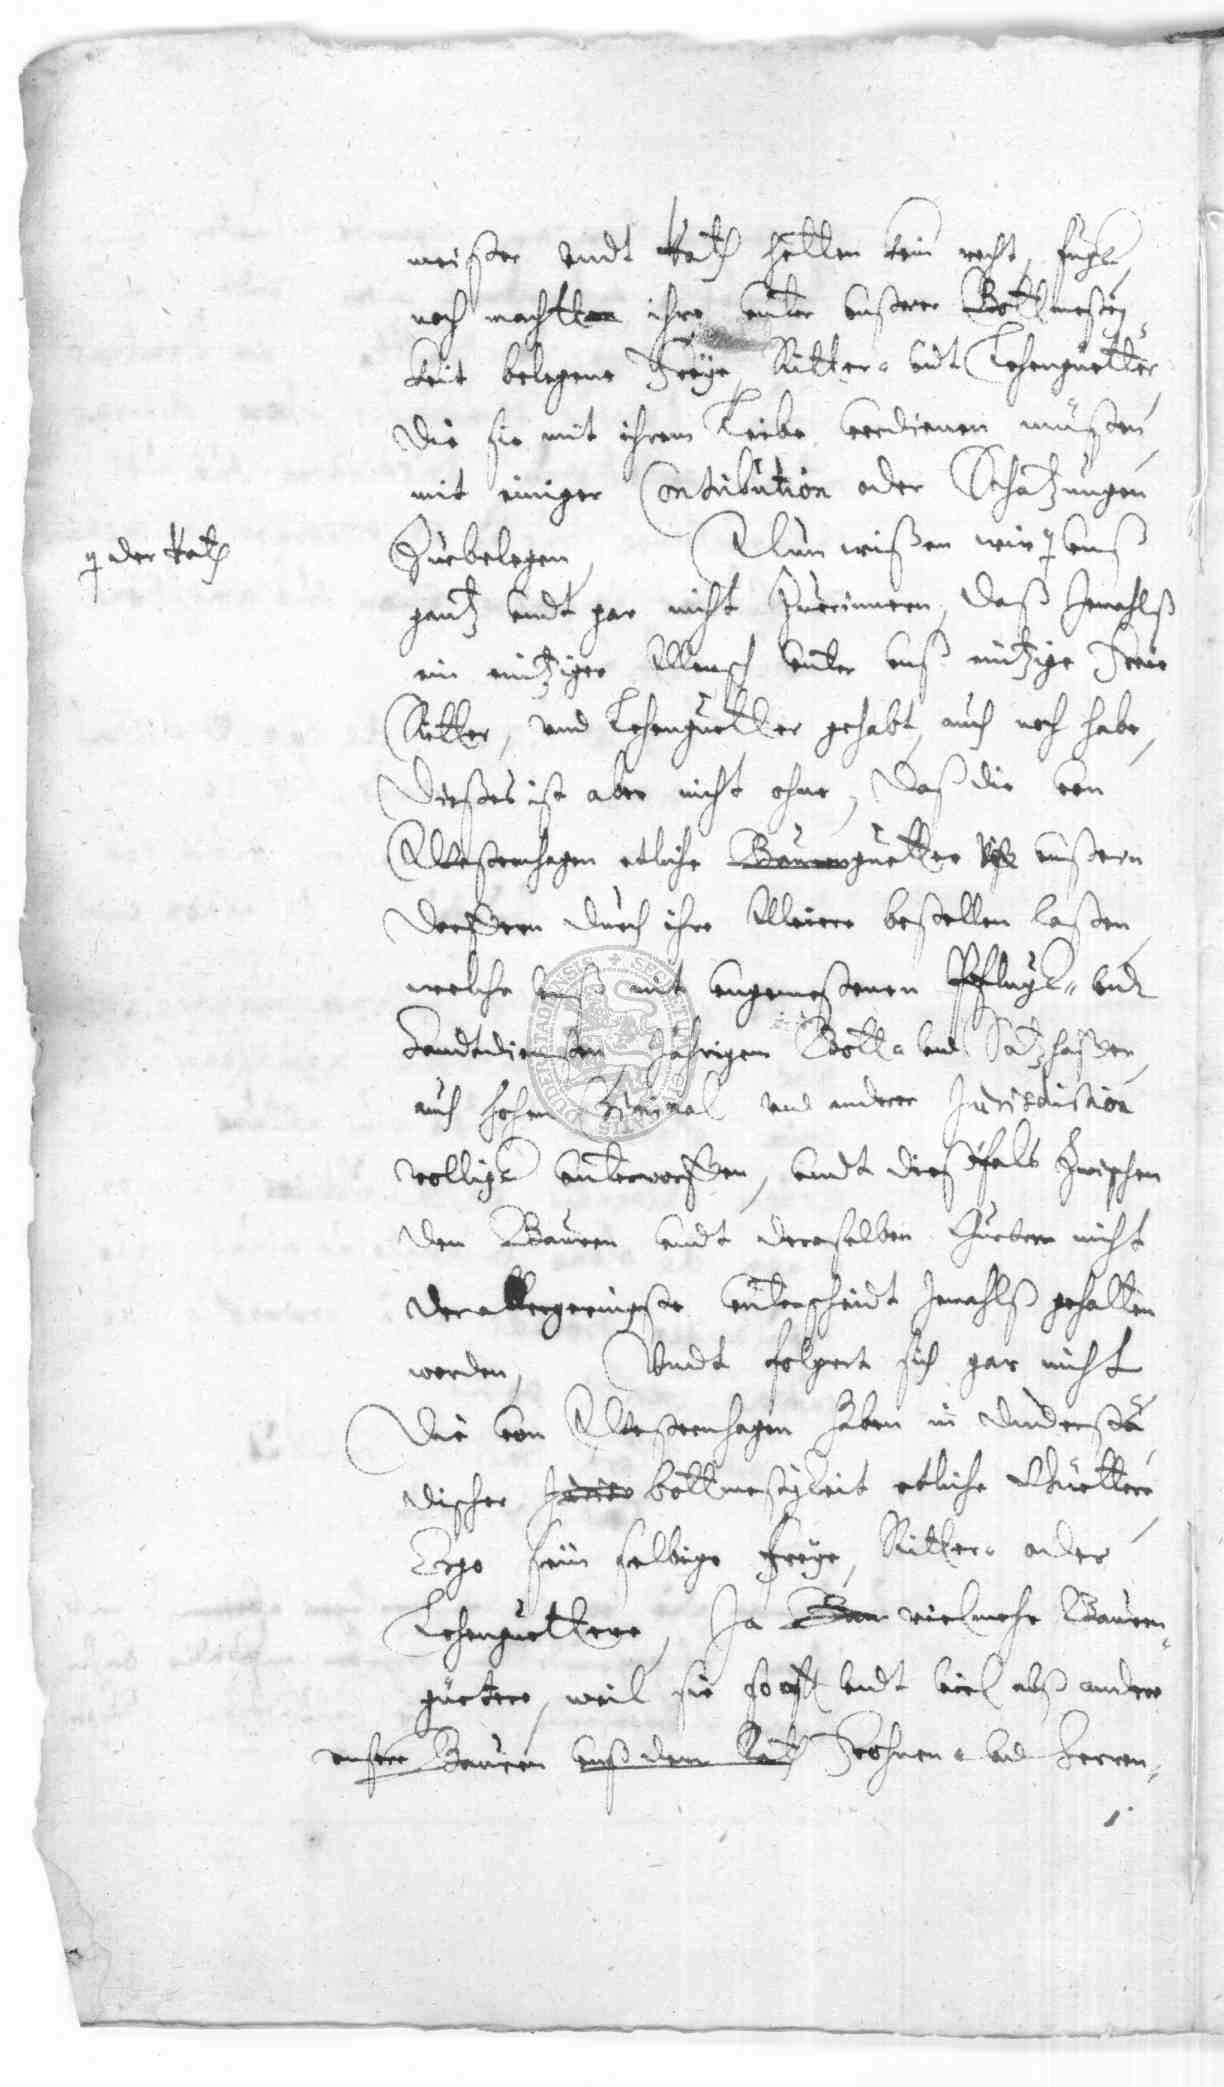 meister undt Rath hetten kein recht, fuhg
noch macht ihre unter unserer Bottmeßig
keit belegene Freye, Ritter- undt Lehengüetter,
die sie mit ihrem Leibe verdienen müßten,
mit einiger Contribution oder Schatzungen
Zuebelegen, Nun wißen wir uns
der Rath
gantz undt gar nicht zuerinnern, daß Jemahlß
ein eintziger Mensch unter unß eintzige Freie
Ritter, und Lehengüetter gehabt, auch noch habe,
Dießes ist aber nicht ohne, daß die von
Westernhagen etliche Baurengüetter in unsern
Dorffern durch ihre Meiere bestellen laßen,
welche unß mit ungemeßenen Pflug- und
Handtdiensten, Jährigem Bott- und
auch hohen Criminal und anderer Jurisdiction
völlig unterworffen, undt dießfals zwischen
den Bauren undt deroselben güetern nicht
der allergeringste unterscheidt Jemahlß gehalten
worden, Undt folgert sich gar nicht
Die von Westernhagen haben in Duderstä
discher bottmeßigkeit etliche Güettere
Ergo sein selbige Freye, Ritter- oder
Lehengüettere, Ja vielmehr Bauren-
güetere, weil sie so offt undt viel alß andere
unsere Bauren unß dem Rath Frohnen- und Herren-